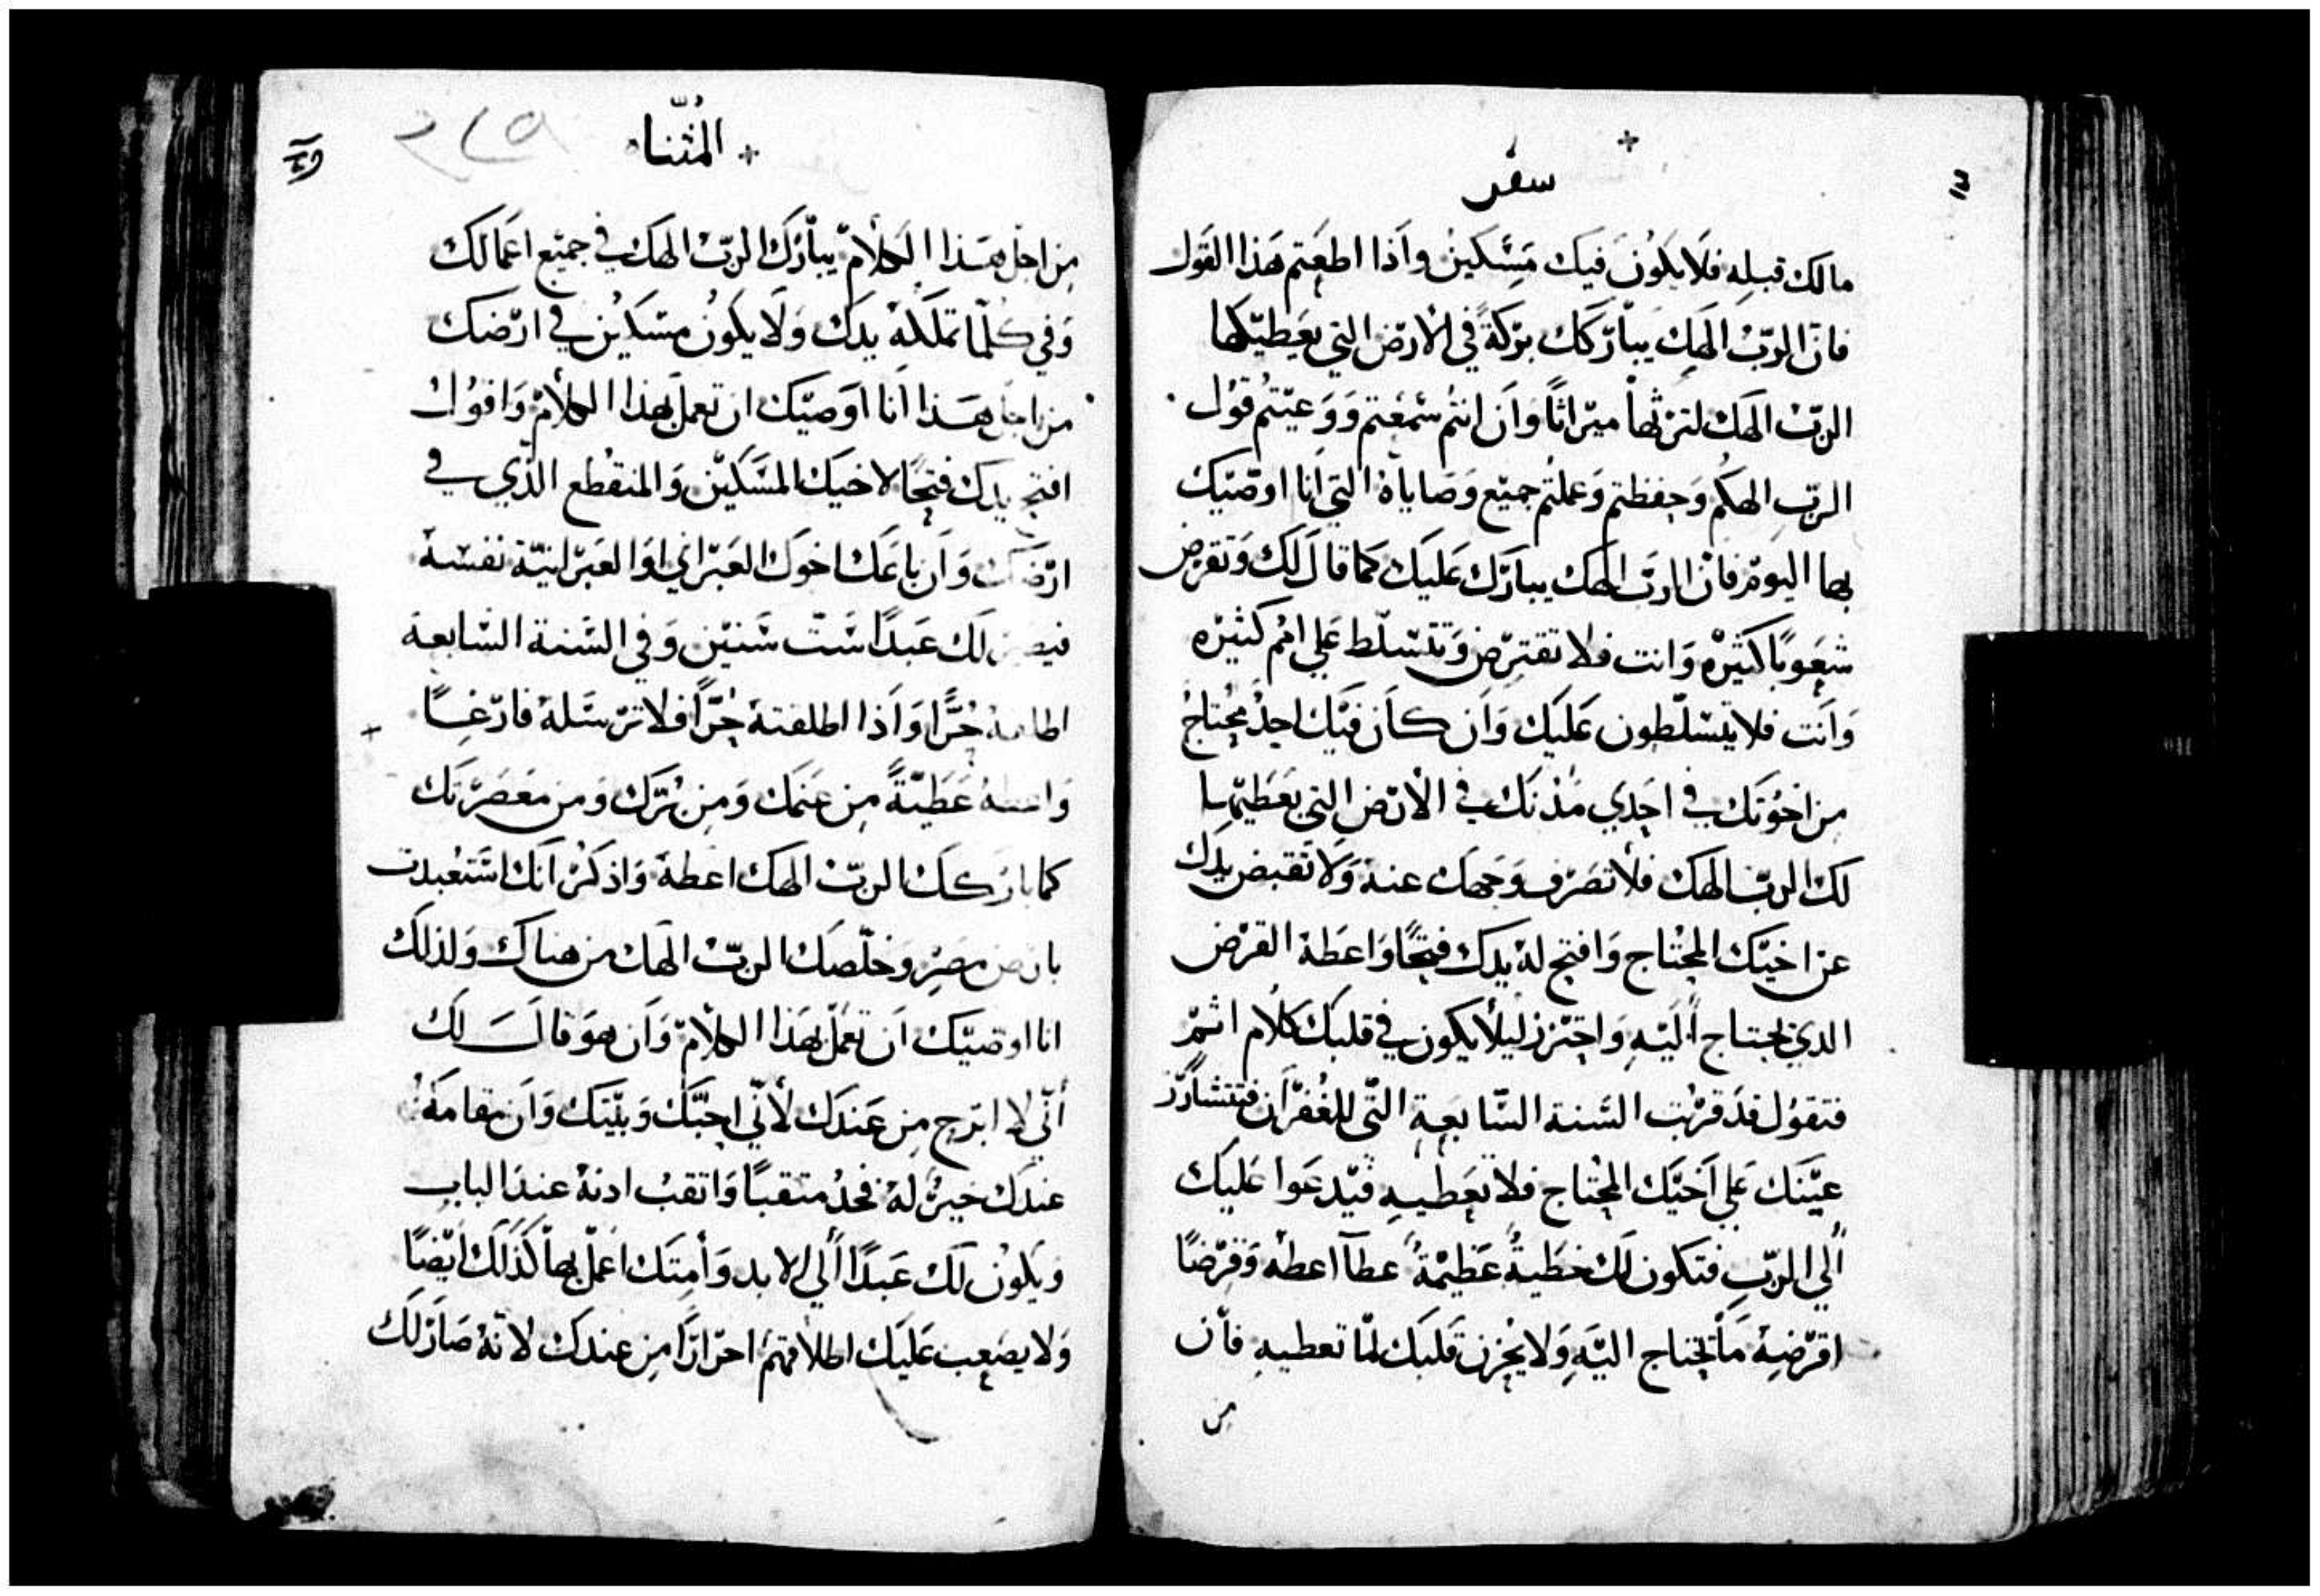 سفر
مالك قبله فلا يكون فيك مسكين واذا اطعتم هذا القول
فان الرب الهك يباركك بركة في الارض التي يعطيكها
الرب الهك لترثها ميراثًا وان انتم سمعتم ووعيتم قول
الرب الهكم وحفظتم وعملتم جميع وصاياه التي انا اوصيك
بها اليوم فان الرب الهك يبارك عليك كما قال لك وتقرض
شعوبًا كثيره وانت فلا تقترض وتتسلط علي امم كثيره
وانت فلا يتسلطون عليك وان كان فيك احد محتاج
من اخوتك في احدي مدنك في الارض التي يعطيها
لك الرب الهك فلا تصرف وجهك عنه ولا تقبض يدك
عن اخيك المحتاج وافتح له يدك فتحًا واعطه القرض
الذي يحتاج اليه واحترز ليلا يكون في قلبك كلام اثم
فتقول قد قربت السنة السابعة التي للغفران فتتشازر
عينك علي اخيك المحتاج فلا تعطيه فيدعوا عليك
الي الرب فتكون لك خطية عظيمة عطآ اعطه وقرضًا
اقرضه ما يحتاج اليه ولا يحزن قلبك لما تعطيه فان
من
المثنا
من اجل هذا الكلام يبارك الرب الهك في جميع اعمالك
وفي كلما تملكه يدك ولا يكون مسكين في ارضك
من اجل هذا انا اوصيك ان تعمل بهذا الكلام واقول
افتح يدك فتحًا لاخيك المسكين والمنقطع الذي في
ارضك وان باعك اخوك العبراني او العبرانية نفسه
فيصير لك عبدًا ست سنين وفي السنة السابعة
اطلقه حرًا واذا اطلقته حرًا فلا ترسله فارغًا
واعطه عطيةً من غنمك ومن برك ومن معصرتك
كما باركك الرب الهك اعطه واذكر انك استعبدت
بارض مصر وخلصك الرب الهك من هناك ولذلك
انا اوصيك ان تعمل بهذا الكلام وان هو قال لك
اني لا ابرح من عندك لاني احبك وبيتك وان مقامه
عندك خير له فخذ متقبًا واتقب ادنه عند الباب
ويكون لك عبدًا الي الابد وأمتك اعمل بها كذلك ايضًا
ولا يصعب عليك اطلاقهم احرارًا من عندك لانه صار لك